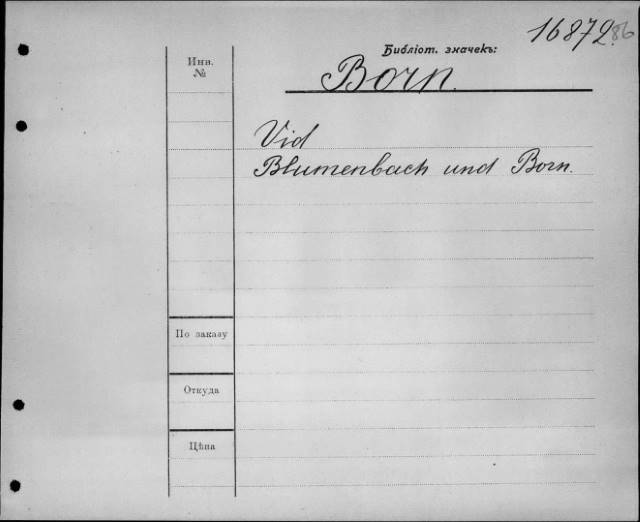 16872.86
Библіот. значекъ:
Инв.
№
Born.
Vid
Blumenbach und Born.
По заказу
Откуда
Цѣна